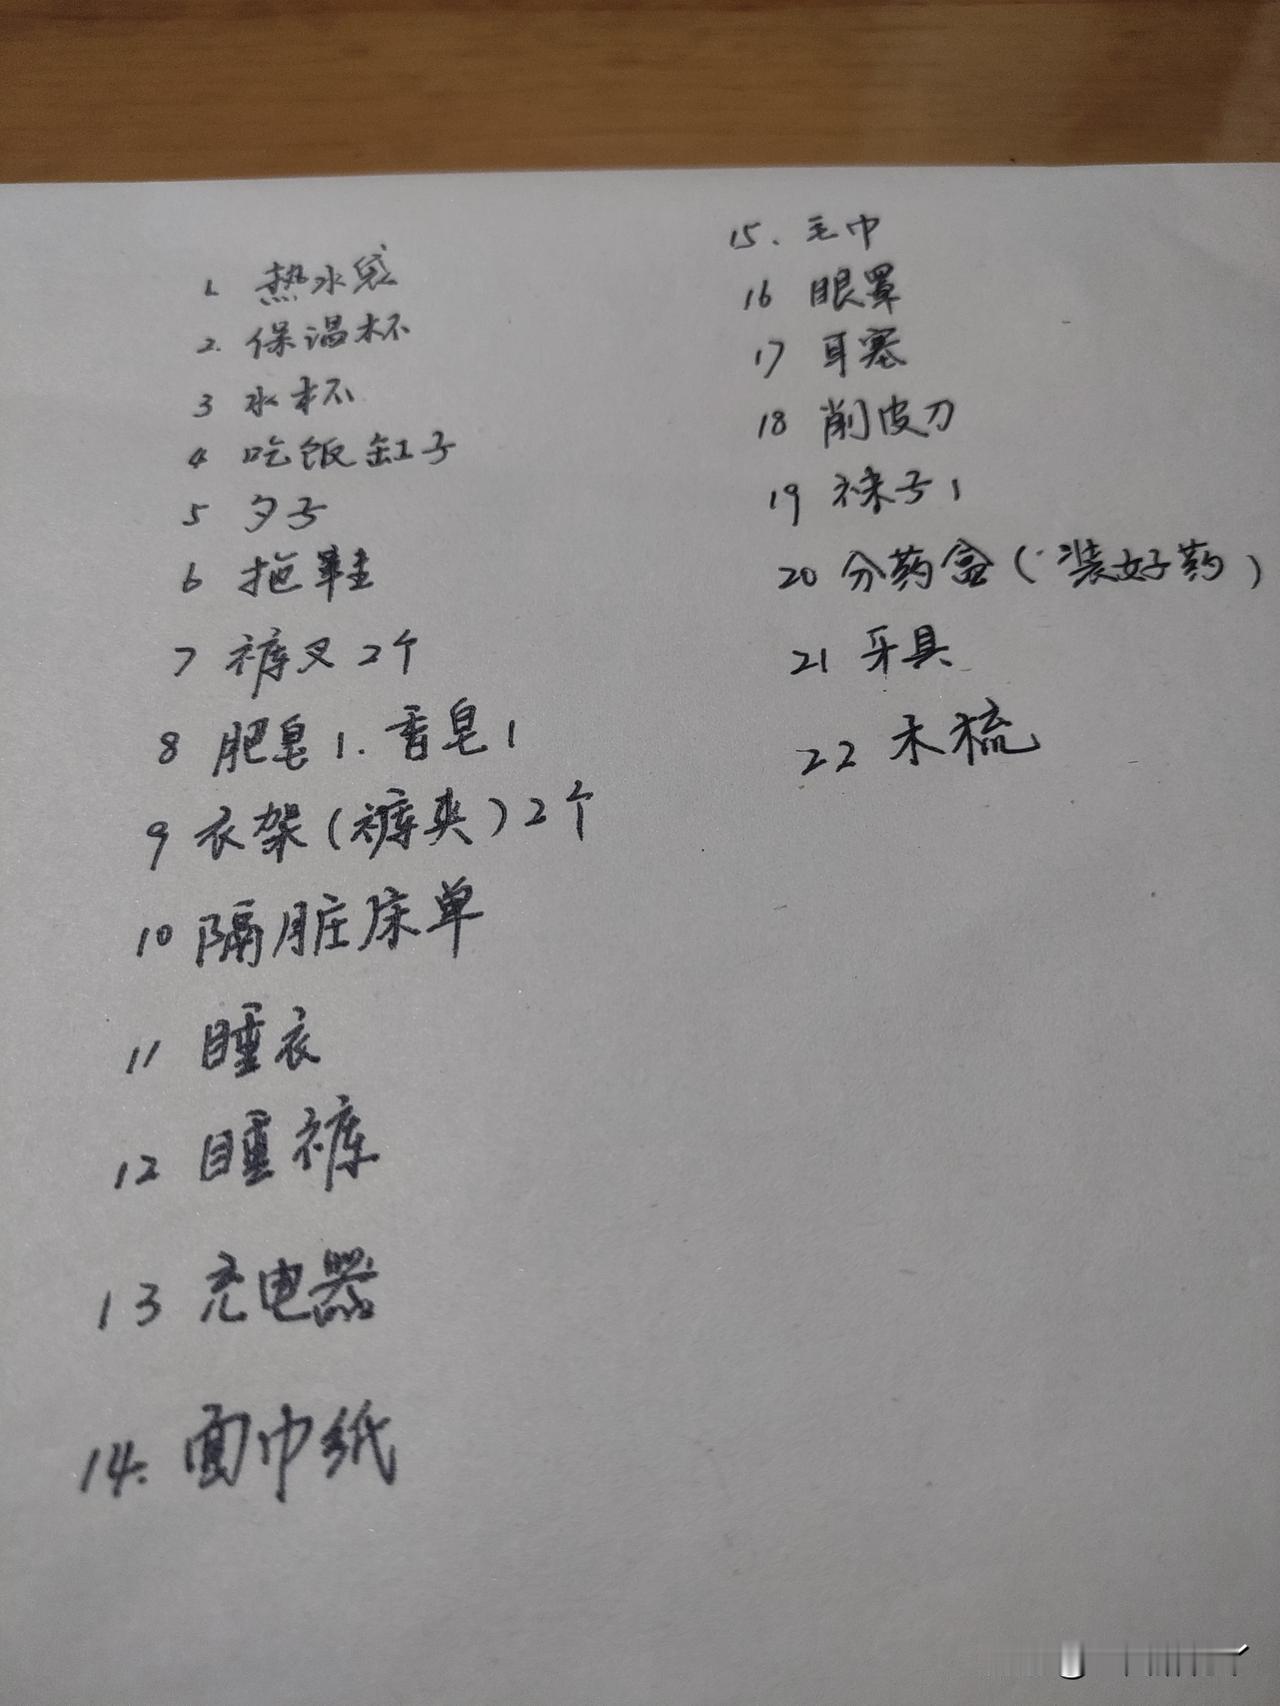 1. 热水袋
2. 保温杯
3 水杯
4 吃饭缸子
5 夕子
6 拖鞋
7 裤叉2个
8 肥皂1.香皂1
9 衣架(裤夹)2个
10 隔脏床单
11 睡衣
12 睡裤
13 充电器
14. 面巾纸
15. 毛巾
16 眼罩
17 耳塞
18 削皮刀
19 袜子1
20 分药盒(装好药)
21 牙具
22 木梳